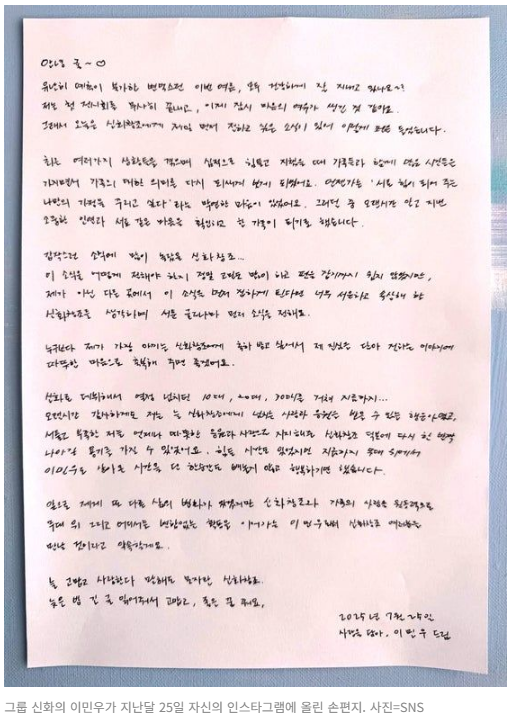 안녕 글~♡
유난히 예측이 불가한 변덕스런 이번 여름, 모두 건강하게 잘 지내고 있나요~?
저는 첫 전시회를 무사히 끝내고, 이제 잠시 마음의 여유가 생긴 것 같아요.
그래서 오늘은 신화창조에게 제일 먼저 전하고 싶은 소식이 있어 이렇게 펜을 들었습니다.
최근 여러가지 상황들을 겪으며 심적으로 힘들고 지쳤을 때 가족들과 함께 많은 시간들을
가지면서 가족의 대한 의미를 다시 되새겨 보게 되었어요. 언젠가는 '서로 힘이 되어 주는
나만의 가정을 꾸리고 싶다'라는 막연한 마음이 있었어요. 그러던 중 오랜시간 알고 지낸
소중한 인연과 서로 같은 마음을 확인하고 한 가족이 되기로 했습니다.
갑작스런 소식에 많이 놀랐을 신화창조...
이 소식을 어떻게 전해야 하지 정말 고민도 많이 하고 펜을 잡기까지 쉽지 않았지만,
제가 아닌 다른 곳에서 이 소식을 먼저 접하게 된다면 너무 서운하고 속상해 할
신화창조를 생각하며 서툰 글로나마 먼저 소식을 전해요.
누구보다 제가 가장 아끼는 신화창조에게 축하 받고 싶어서 제 진심을 담아 전하는 이야기에
따뜻한 마음으로 축복해 주면 좋겠어요.
신화로 데뷔해서 열정 넘치던 10대, 20대, 30대를 거쳐 지금까지...
오랜시간 감사하게도 저는 늘 신화창조에게 넘치는 사랑과 응원을 받을 수 있는 행운아였고,
서툴고 부족한 저를 언제나 따뜻한 응원과 사랑으로 지지해준 신화창조 덕분에 다시 한 번 더
나아갈 용기를 가질 수 있었어요. 힘든 시간도 있었지만 지금까지 무대 위에서
이민우로 살아온 시간을 단 한순간도 빼놓지 않고 행복하기만 했습니다.
앞으로 제게 또 다른 삶의 변화가 생겼지만 신화창조와 가족의 사랑을 원동력으로
무대 위 그리고 어디서든 변함없는 활동을 이어가는 이민우로서 신화창조 여러분을
만날 것이라고 약속할게요.
늘 고맙고 사랑한다 말해도 모자란 신화창조.
늦은 밤 긴 글 읽어줘서 고맙고, 좋은 꿈 꿔요.
2025년 7월 25일
사랑을 담아, 이민우 드림
그룹 신화의 이민우가 지난달 25일 자신의 인스타그램에 올린 손편지. 사진=SNS